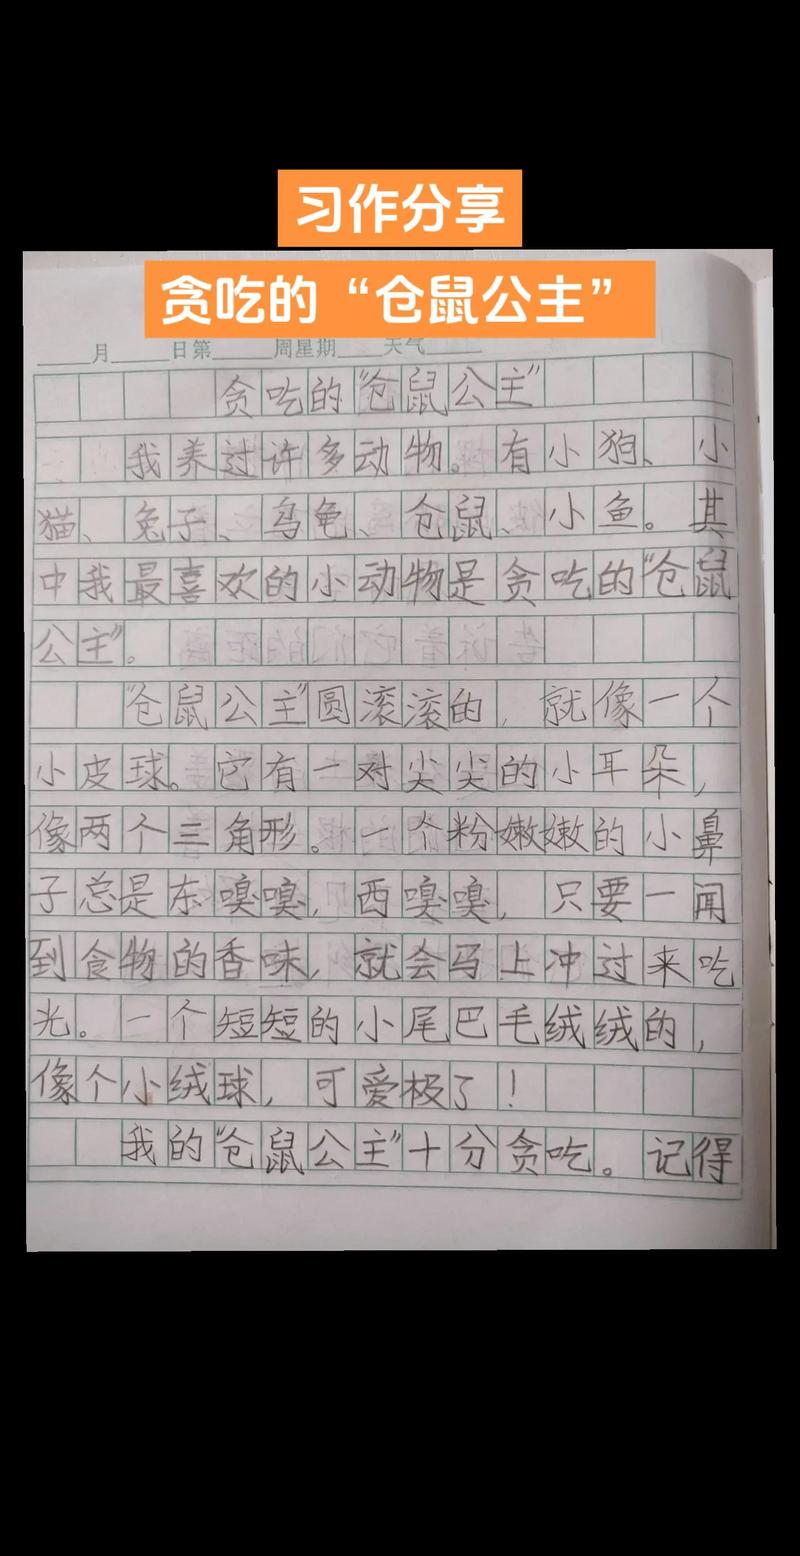 习作分享
贪吃的“仓鼠公主”
月 日第 周星期 天气
贪吃的“仓鼠公主”
我养过许多动物。有小狗、小
猫、兔子、乌龟、仓鼠、小鱼。其
中我最喜欢的小动物是贪吃的“仓鼠
公主”。
“仓鼠公主”圆滚滚的，就像一个
小皮球。它有一对尖尖的小耳朵，
像两个三角形。一个粉嫩嫩的小鼻
子总是东嗅嗅，西嗅嗅，只要一闻
到食物的香味，就会马上冲过来吃
光。一个短短的小尾巴毛绒绒的，
像个小绒球，可爱极了！
我的“仓鼠公主”十分贪吃。记得